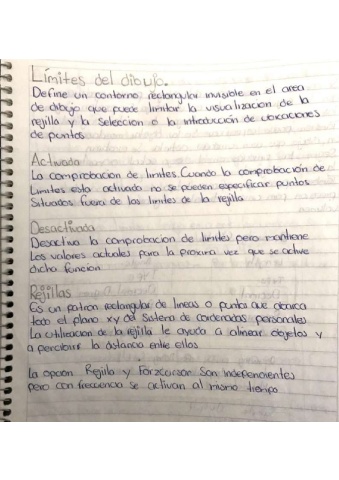 Límites del dibujo.
Define un contorno rectangular invisible en el area
de dibujo que puede limitar la visualización de la
rejilla y la selección o la introducción de ubicaciones
de puntos
Activada
La comprobacion de limites Cuando la comprobación de
Limites esta activado no se pueden especificar puntos
Situados fuera de los limites de la rejilla
Desactivada
Desactiva la comprobacion de limites pero mantiene
Los valores actuales para la proxima vez que se active
dicha funcion
Rejillas
Es un patron rectangular de lineas o puntos que abarca
todo el plano xy del Sistema de cordenadas personales
La utilizacion de la rejilla le ayuda a alinear objetos y
a percibir la distancia entre ellos
La opcion Rejilla y Forzcursor Son independientes
pero con frecuencia se activan al mismo tiempo